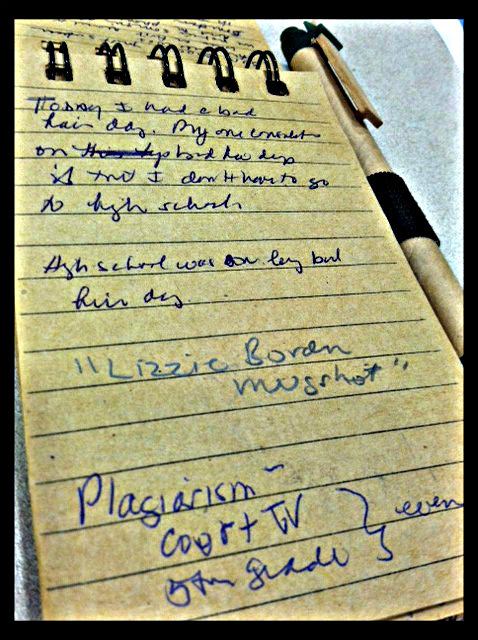 Today I had a bad
hair day. My one comment
on bad hair days
is that I don't have to go
to high school.
High school was one long bad
hair day.
"Lizzie Borden
mugshot"
Plagiarism ~
Court TV
5th grade } even